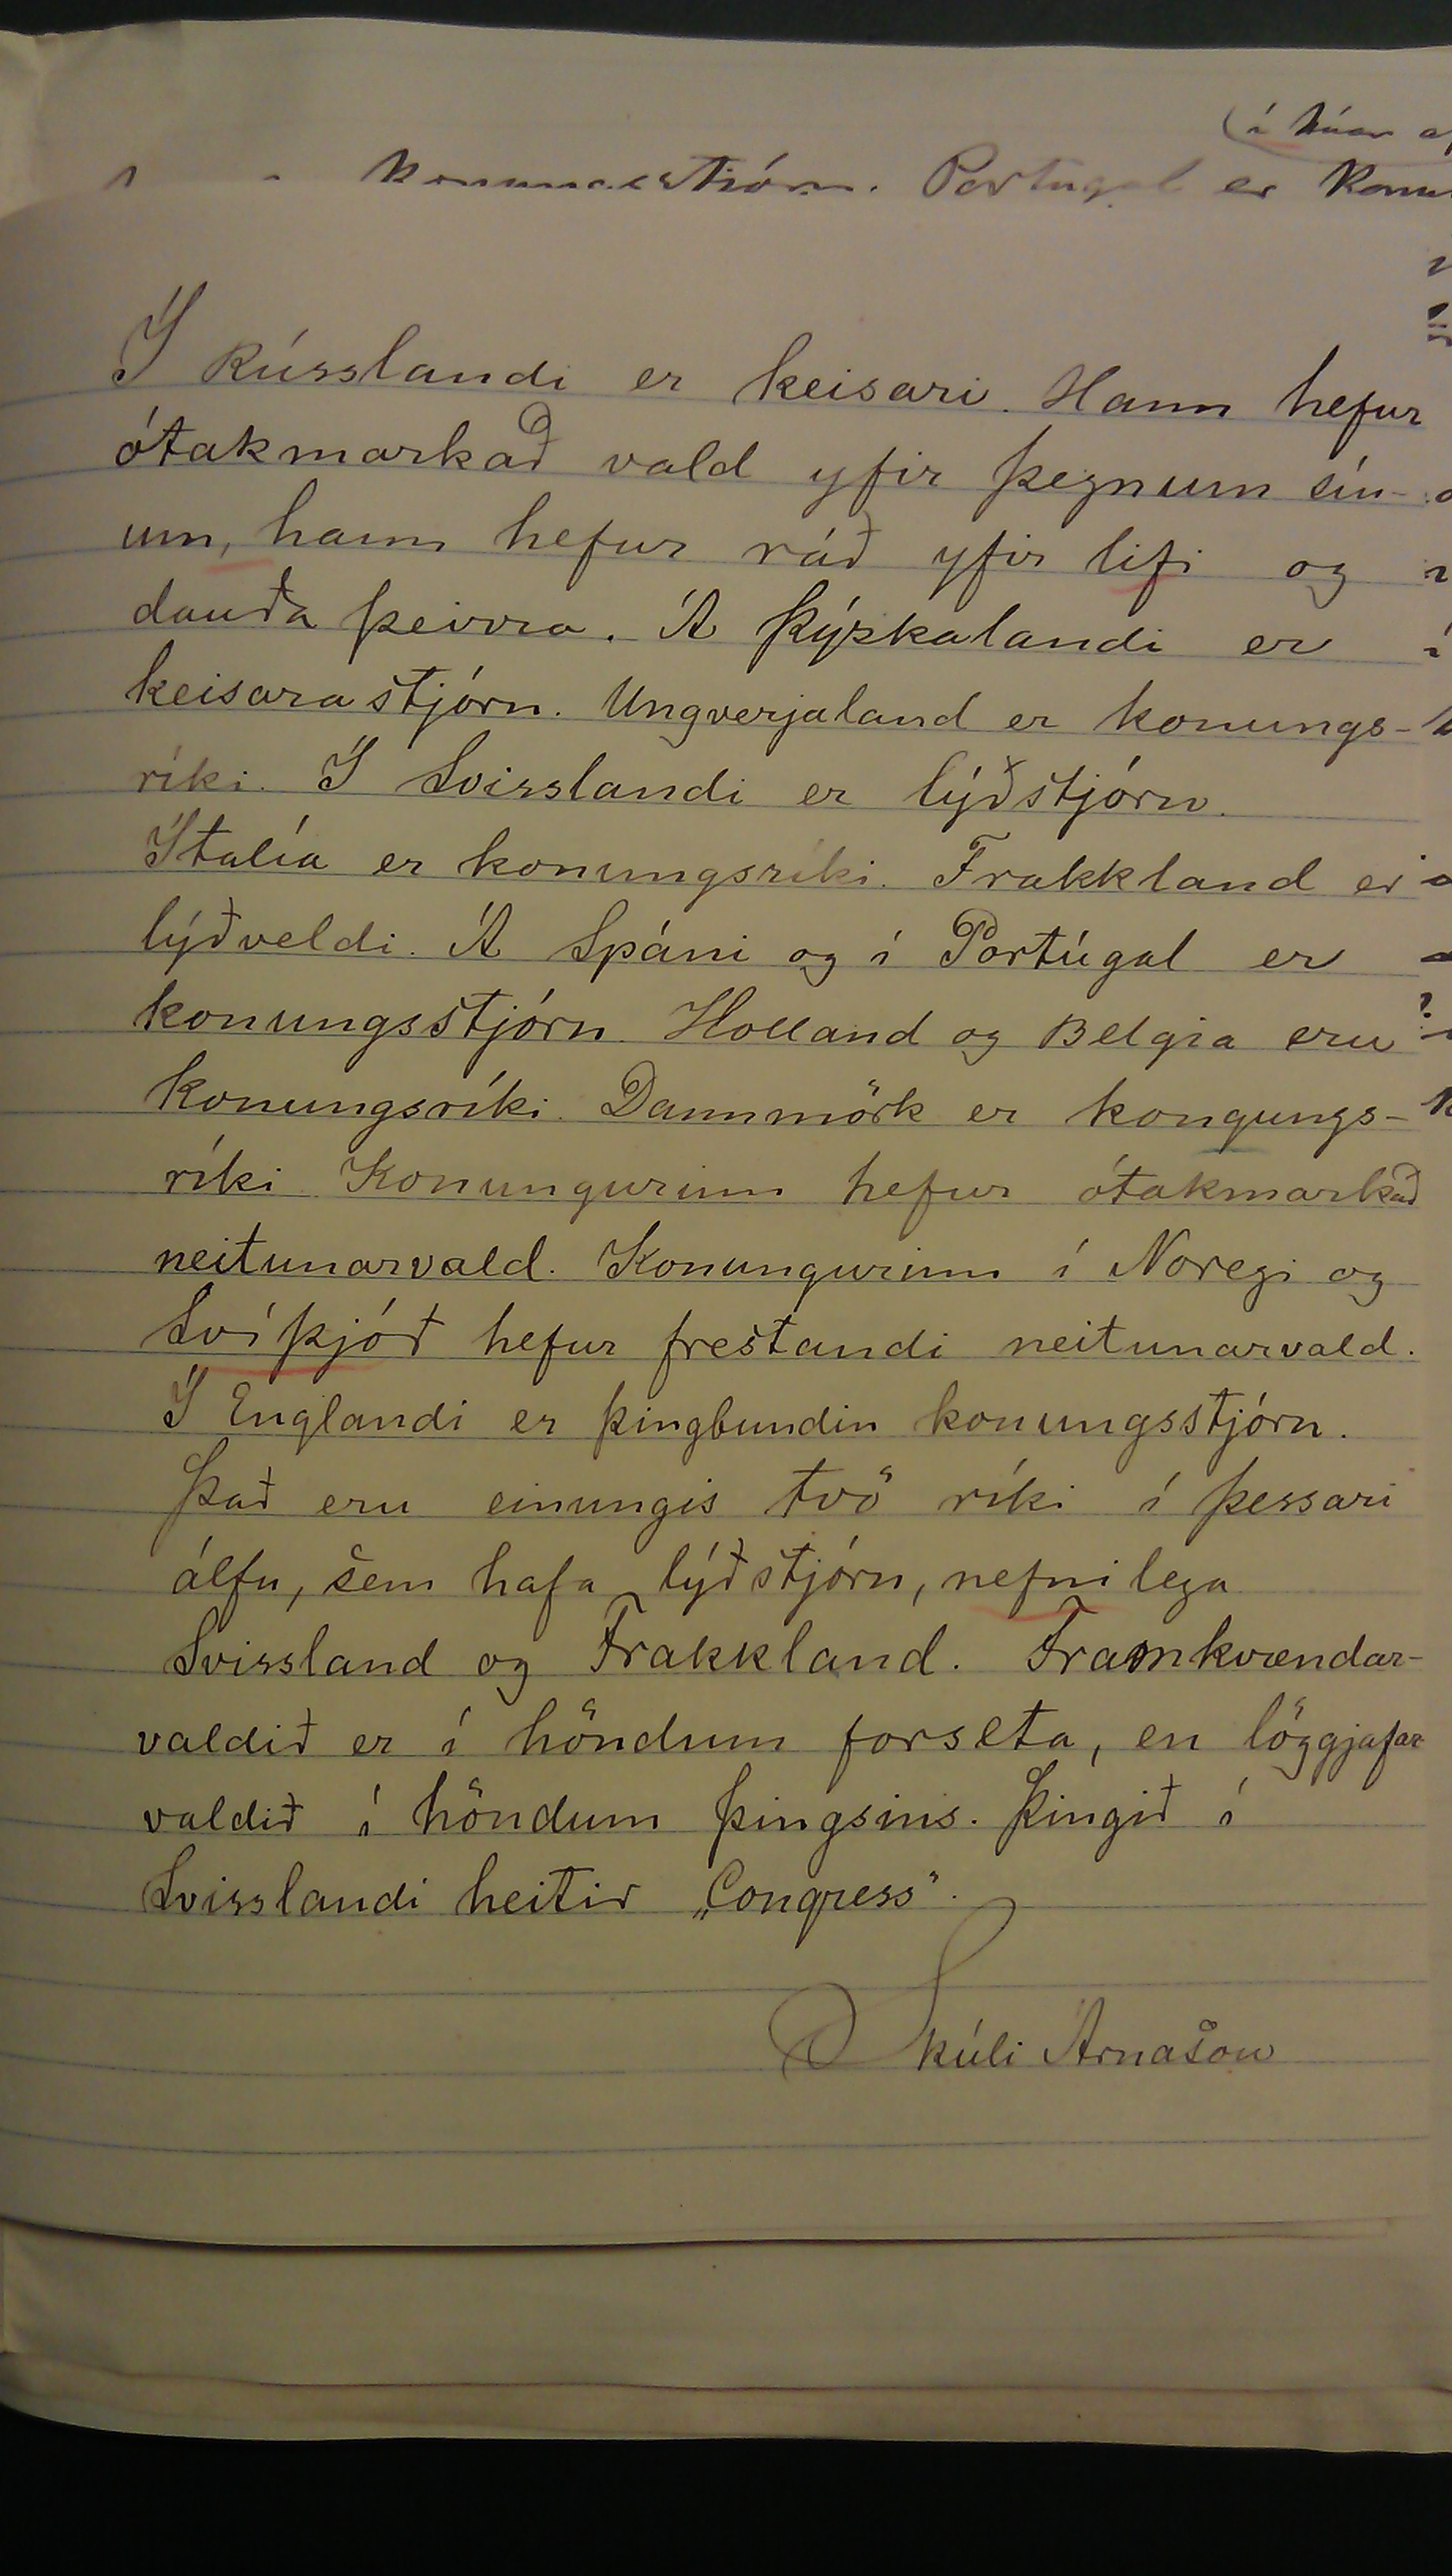 (í
konungsstjórn. Portugal er
Í Rússlandi er keisari. Hann hefur
ótakmarkað vald yfir þegnum sín-
um, hann hefur ráð yfir lifi og
dauða þeirra. Á Þýzkalandi er
keisarastjórn. Ungverjaland er konungs-
ríki. Í Svisslandi er lýðstjórn.
Ítalía er konungsríki. Frakkland er
lýðveldi. Á Spáni og í Portúgal er
konungsstjórn. Holland og Belgia eru
konungsríki. Dannmörk er kongungs-
ríki. Konungurinn hefur ótakmarkað
neitunarvald. Konungurinn í Noregi og
Svíþjóð hefur frestandi neitunarvald.
Í Englandi er þingbundin konungsstjórn.
Það eru einungis tvö ríki í þessari
álfu, sem hafa lýðstjórn, nefnilega
Svissland og Frakkland. Framkvændar-
valdið er í höndum forseta, en löggjafar
valdið í höndum þingsins. Þingið í
Svisslandi heitir „Congress".
Skúli Árnason